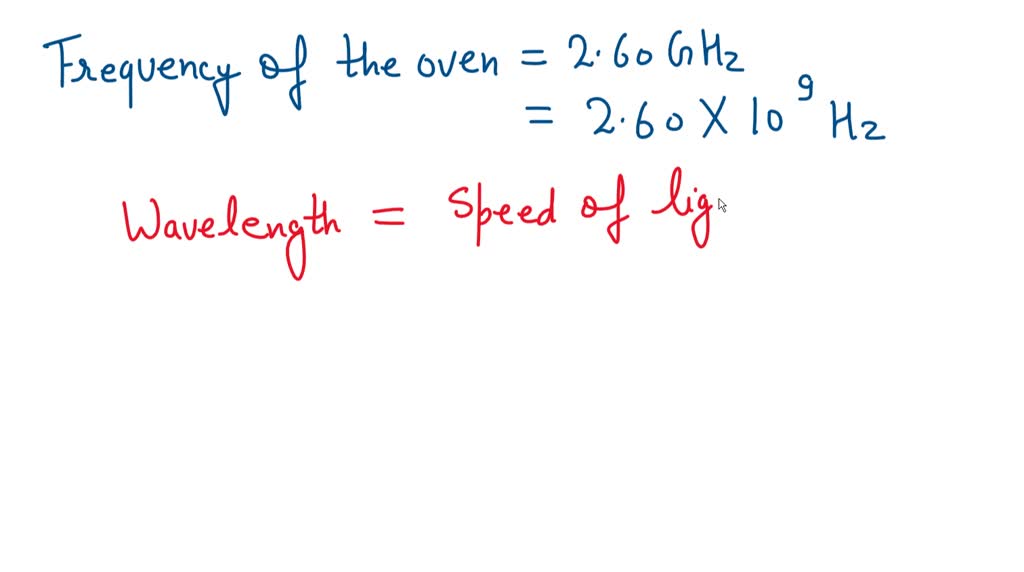 Frequency of the oven = 2.60 GHz
= 2.60 X 10⁹ Hz
Wavelength = Speed of lig